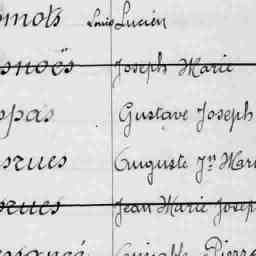 omots Louis Lucien
snoës Joseph Marie
ppas Gustave Joseph
srues Auguste Jn Mari
srues Jean Marie Josep
Aimable Pierre